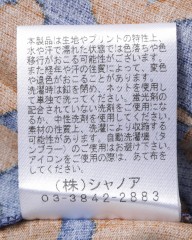 本製品は生地やプリントの特性上、
水や汗で濡れた状態では色落ちや色
移行がおこる可能性がございます。
また経年や汗の性質によって、変色
が発生する場合がございます。
洗濯時は釦を閉め、ネットを使用し
て単独で洗ってください。蛍光剤の
配合されていない洗剤をご使用にな
るか、中性洗剤をご使用ください。
素材の性質上、洗濯により収縮する
可能性がございます。自動洗濯機(タ
ンブラー)のご使用はお避け下さい。
アイロンをご使用の際は、あて布を
してください。
(株)シャノア
03-3842-2883